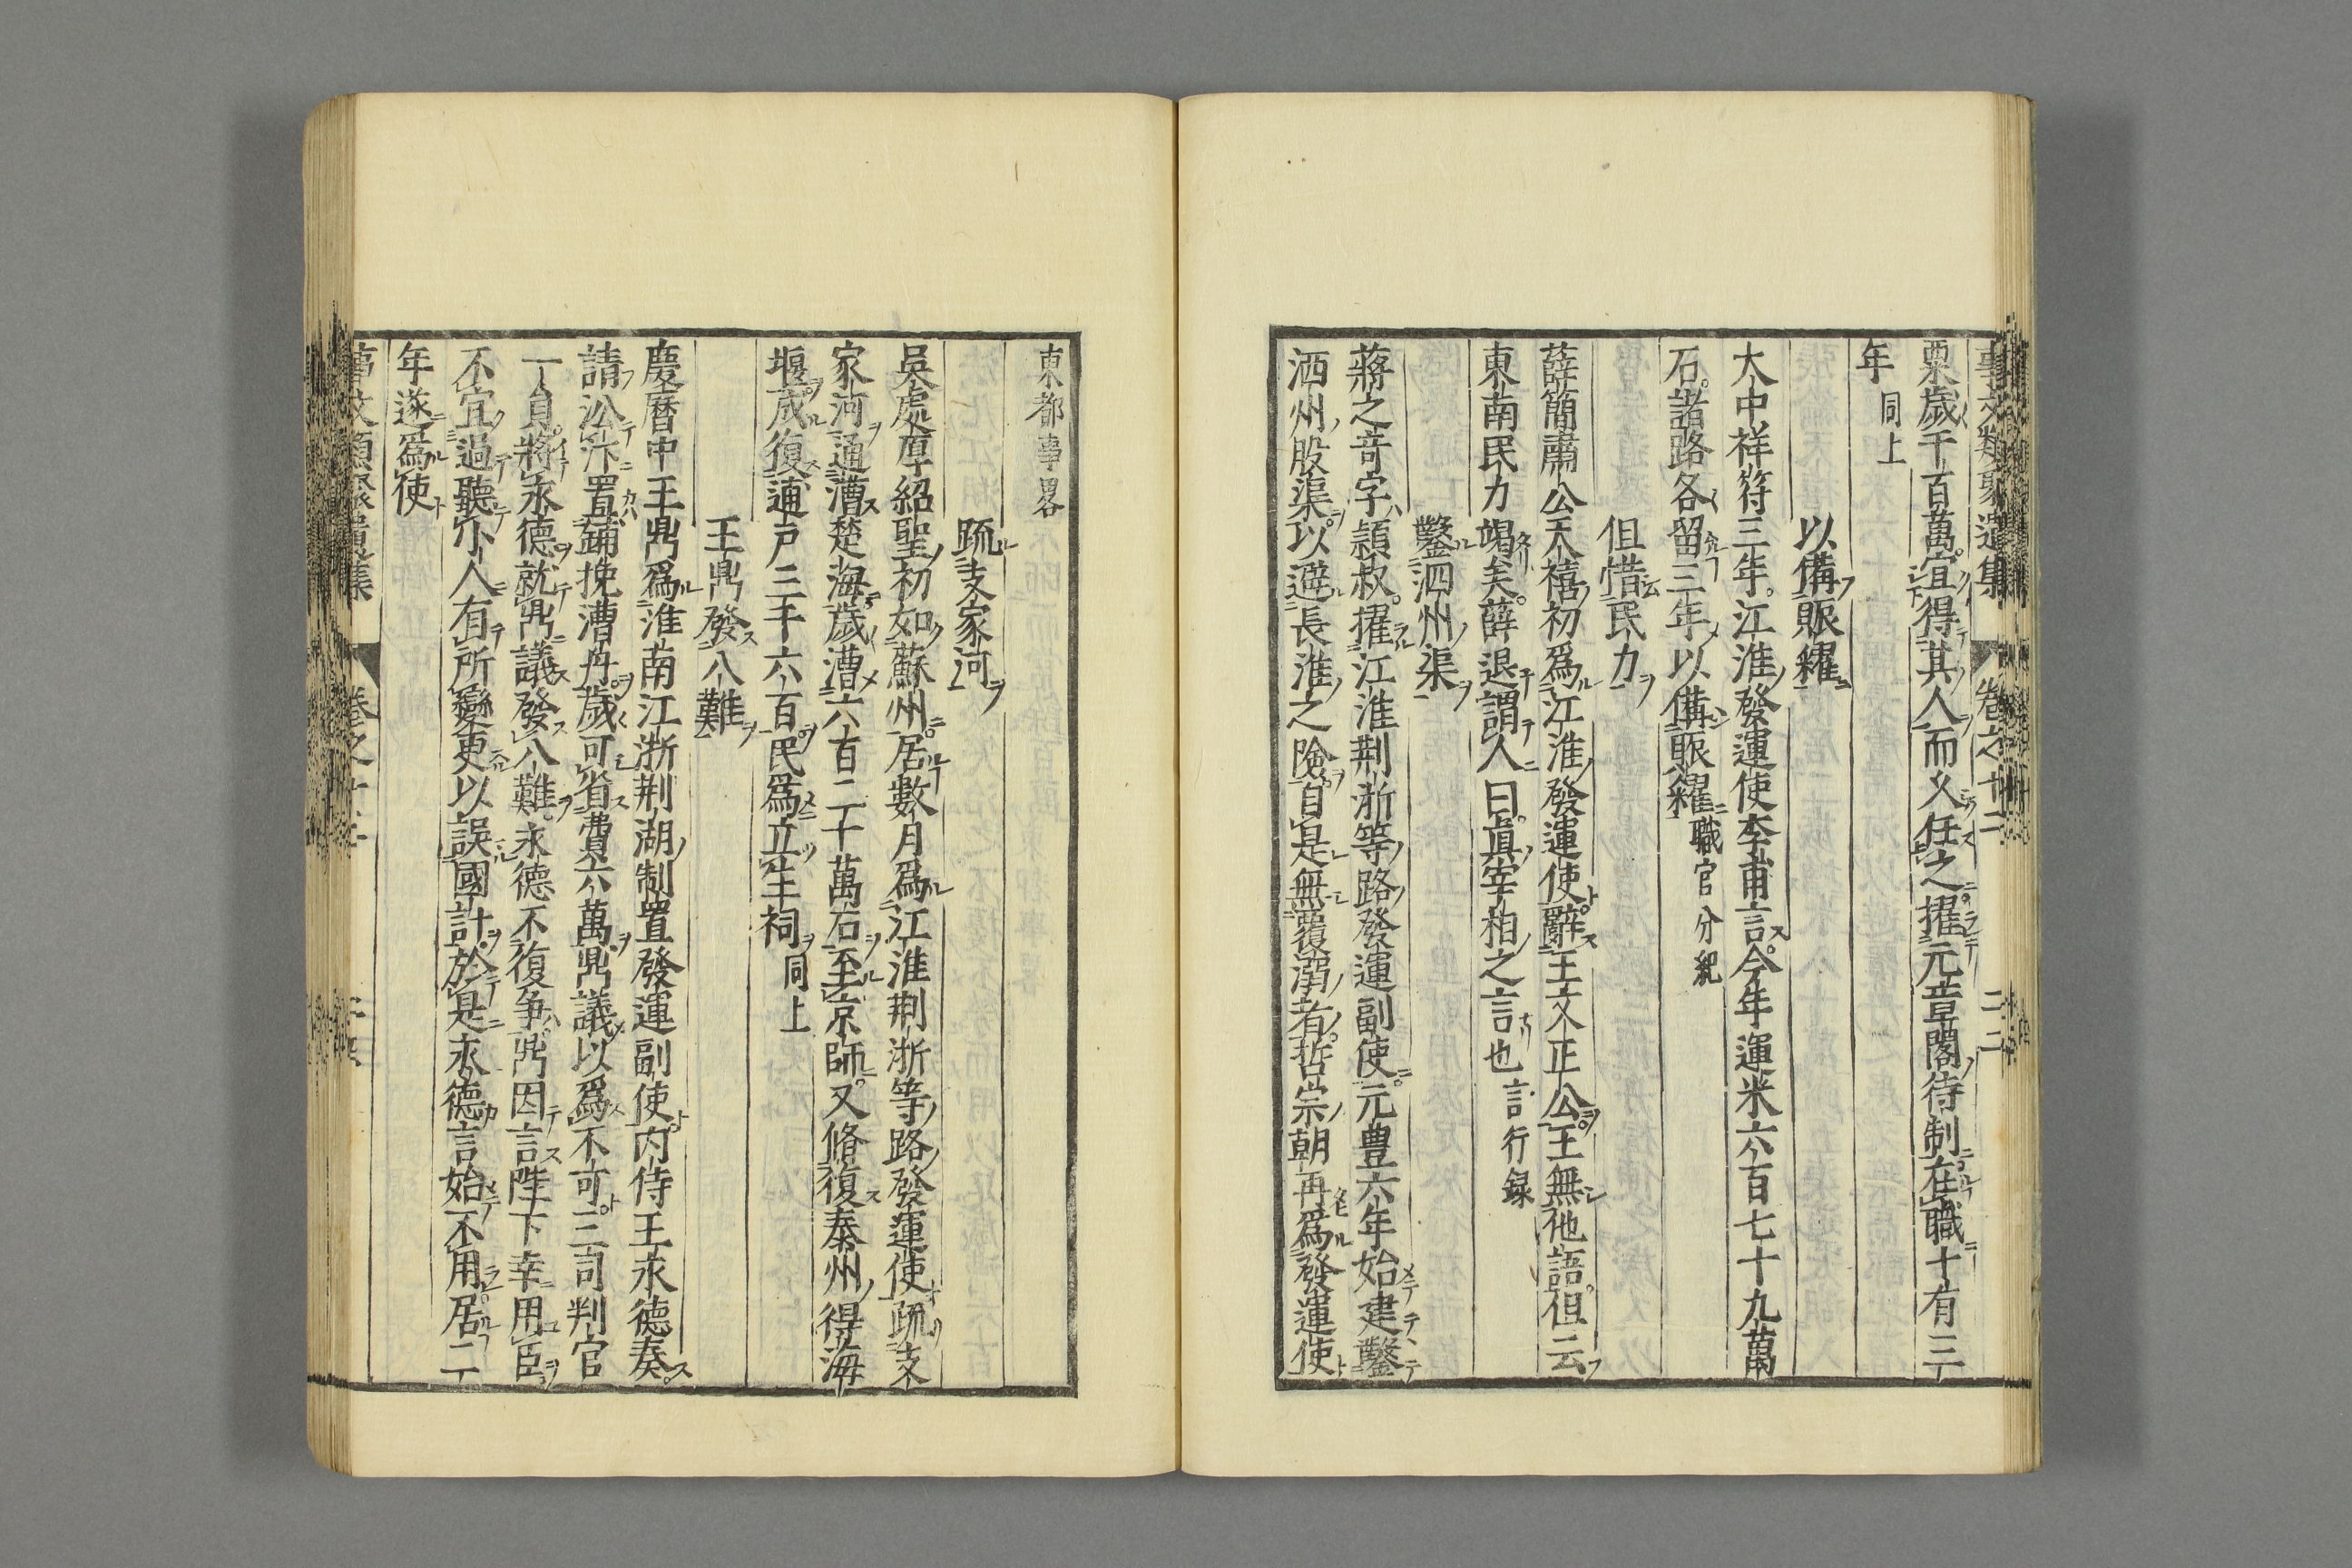 事文類聚遺集 卷之十二 二二
粟歲千百萬宜得其人而乂任之擢元章閣待制在職十有三
年 同上
以備賑糶
大中祥符三年江淮發運使李甫言今年運米六百七十九萬
石諸路各留三年以備賑糶 職官分紀
但惜民力
薛簡肅公天禧初爲江淮發運使辭王文正公王無他語但云
東南民力竭矣薛退謂人曰眞宰相之言也 言行録
鑿泗州渠
蔣之竒字頴叔擢江淮荆浙等路發運副使元豊六年始建鑿
洒州股渠以避長淮之險自是無覆溺者哲宗朝再爲發運使
東都事畧
疏支家河
吳處厚紹聖初如蘇州居數月爲江淮荆浙等路發運使疏支
家河通漕楚海歲漕六百二十萬石至京師又脩復泰州得海
堰成復逋戸二千六百民爲立生祠 同上
王鼎發八難
慶曆中王鼎爲淮南江浙荆湖制置發運副使内侍王永德奏
請沿汴置鋪挽漕舟歲可省費六萬鼎議以爲不可三司判官
一員將永德就鼎議發八難永德不復争鼎因言陛下幸用臣
不宜過聽小人有所變更以誤國計於是永德言始不用居二
年遂爲使
事文類聚遺集 卷之十二